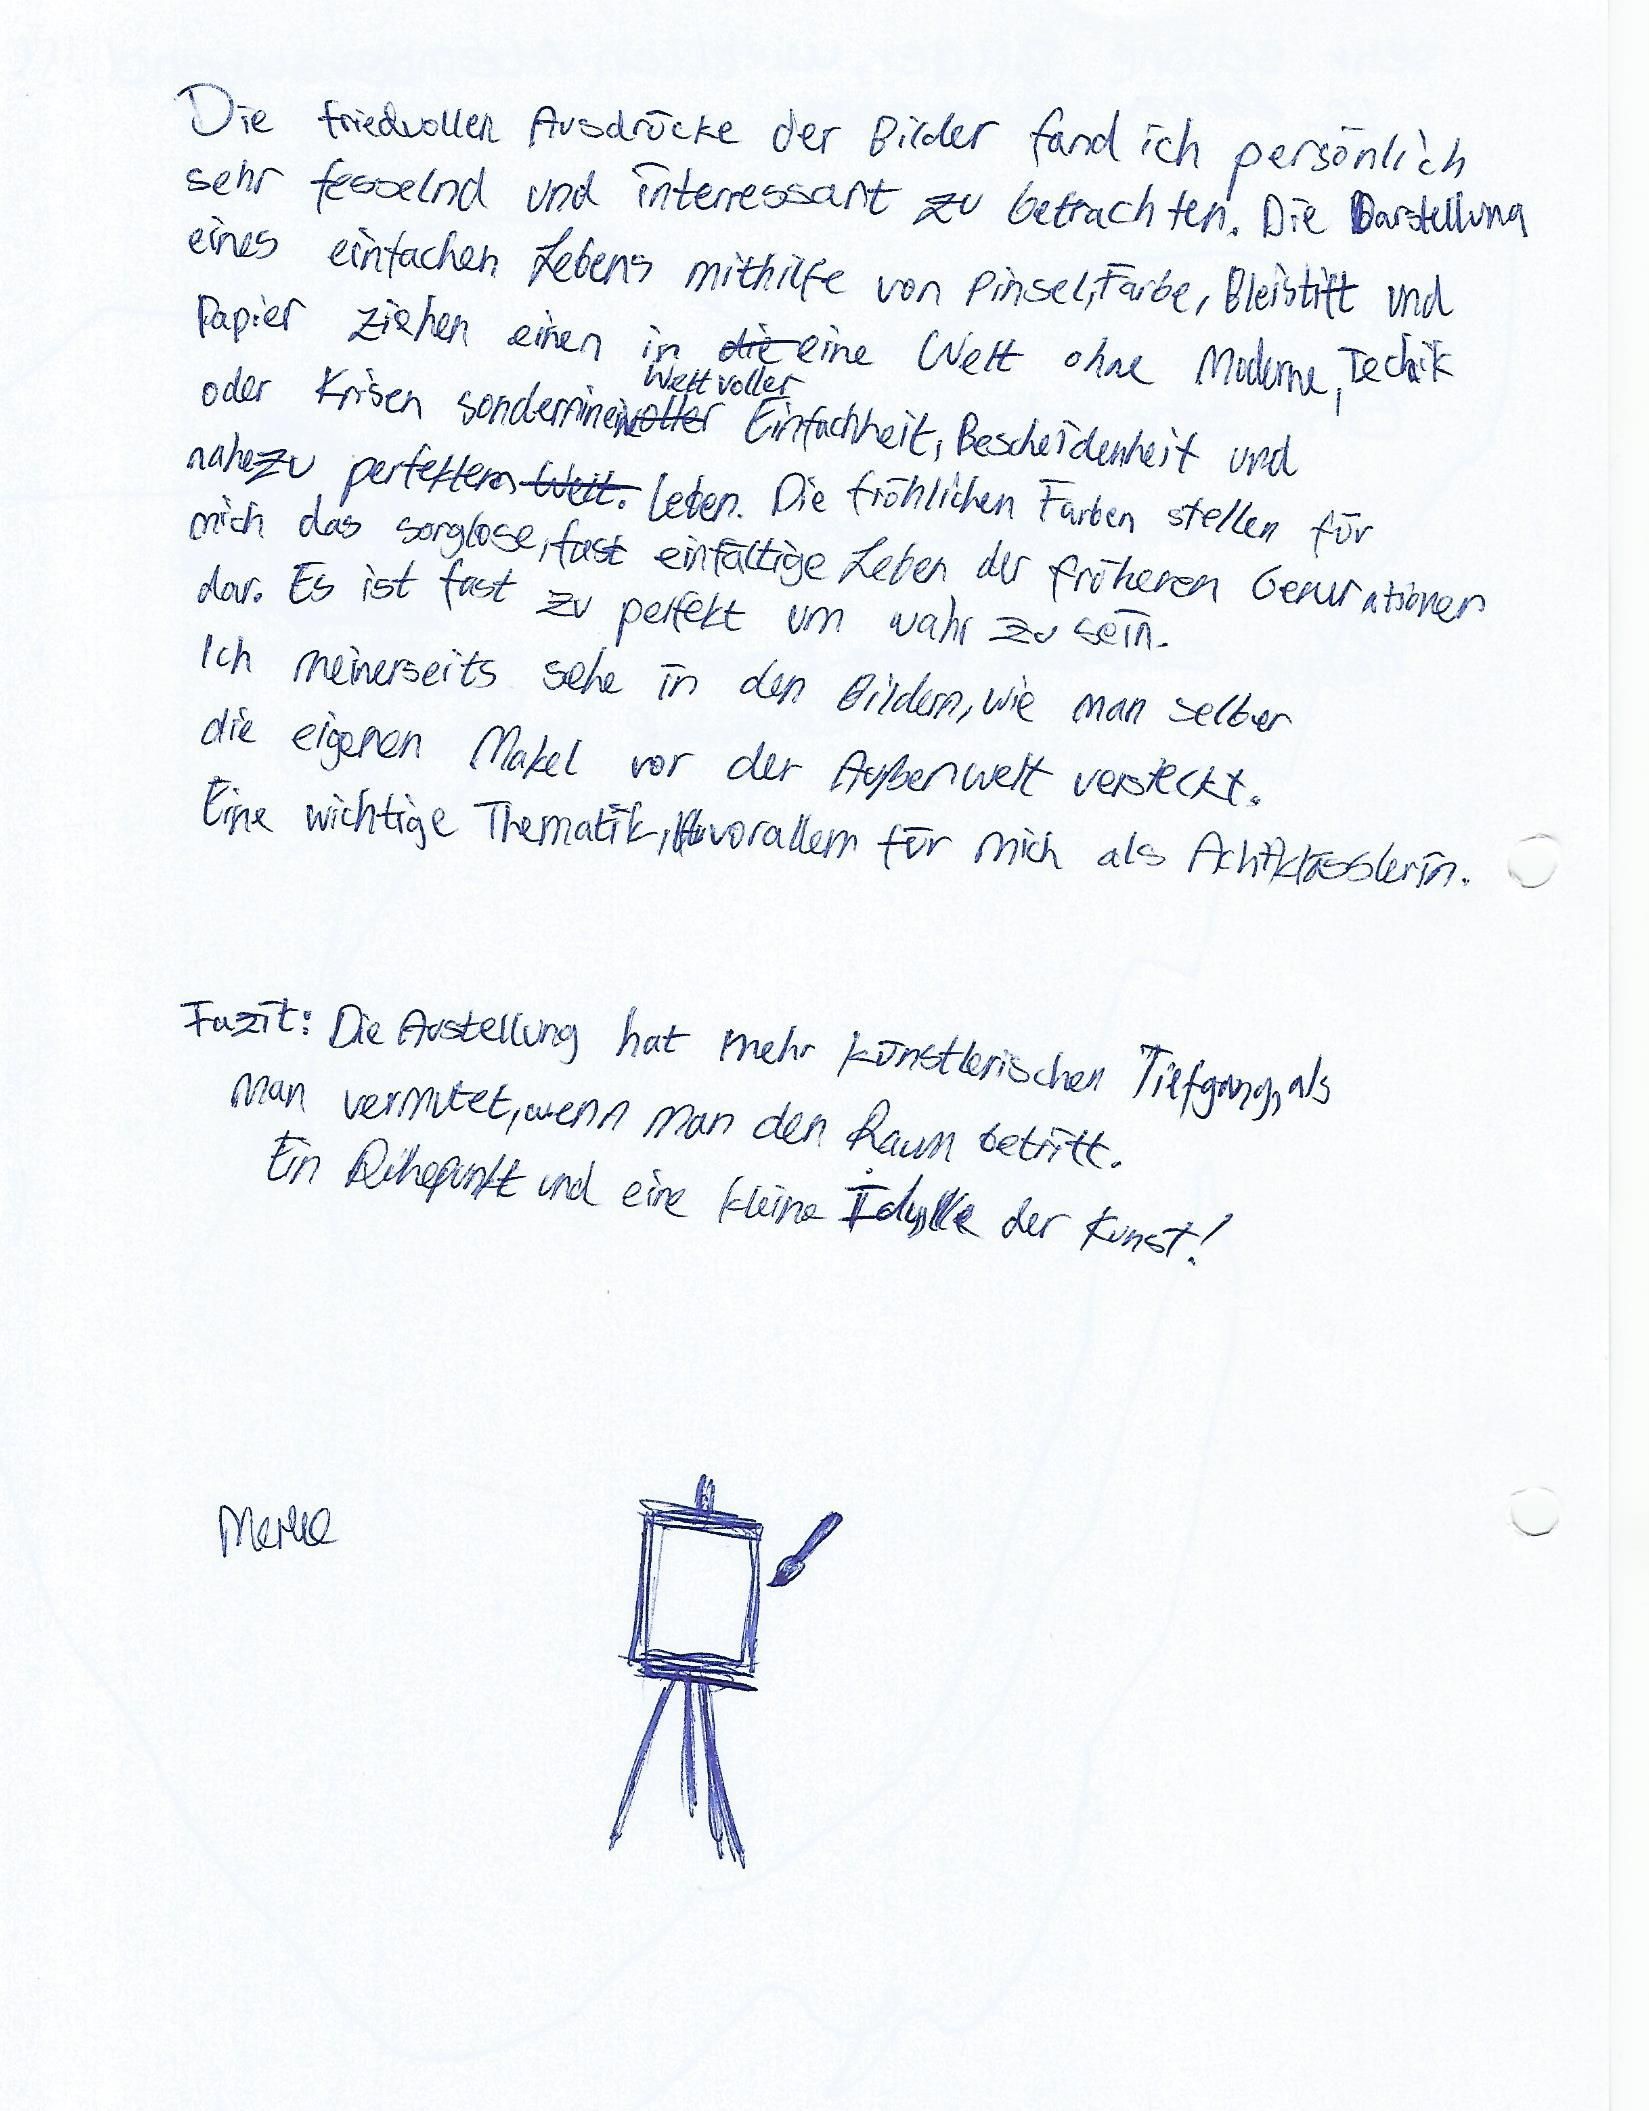 Die friedvollen Ausdrücke der Bilder fand ich persönlich
sehr fesselnd und interressant zu betrachten. Die Darstellung
eines einfachen Lebens mithilfe von Pinsel, Farbe, Bleistift und
Papier ziehen einen in die eine Welt ohne Moderne, Technik
Welt voller
oder Krisen sondern in eine voller Einfachheit, Bescheidenheit und
nahezu perfektem Welt. Leben. Die fröhlichen Farben stellen für
mich das sorglose, fast einfältige Leben der früheren Generationen
dar. Es ist fast zu perfekt um wahr zu sein.
Ich meinerseits sehe in den Bildern, wie man selber
die eigenen Makel vor der Außenwelt versteckt.
Eine wichtige Thematik, vorallem für mich als Achtklässlerin.
Fazit: Die Austellung hat mehr künstlerischen Tiefgang, als
man vermutet, wenn man den Raum betritt.
Ein Ruhepunkt und eine kleine Idylle der Kunst!